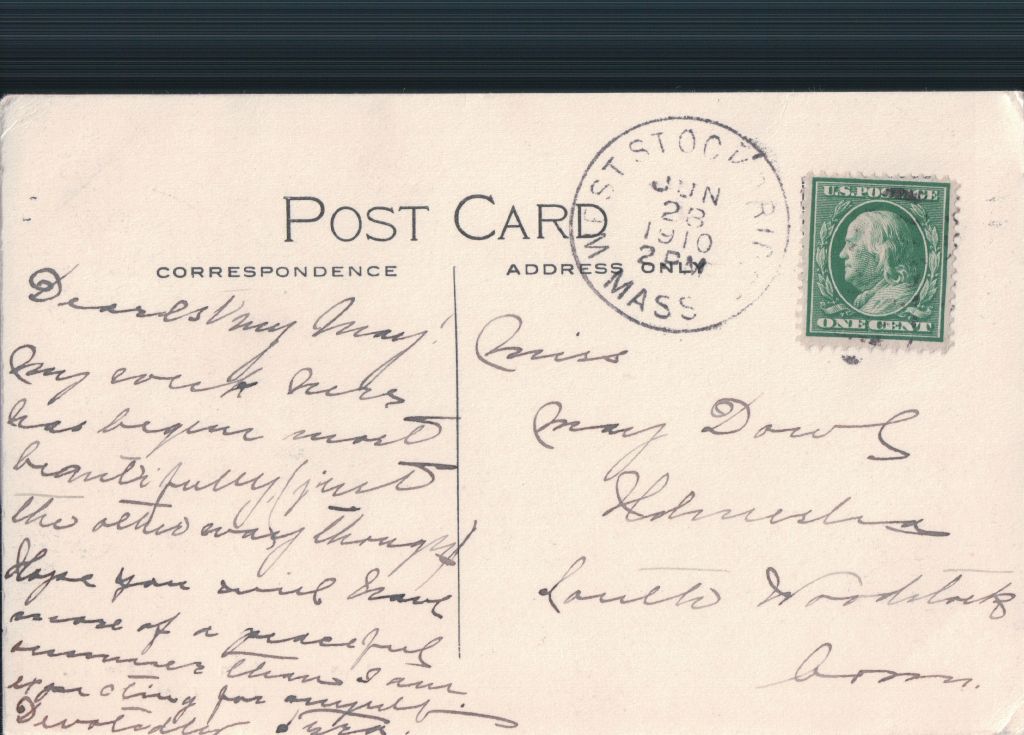 POST CARD
CORRESPONDENCE
ADDRESS ONLY
WEST STOCKBRIDGE
JUN
28
1910
2 PM
MASS
U.S. POSTAGE
ONE CENT
Dearest my May!
My week here
has begun most
beautifully (just
the other way though)
Hope you will have
more of a peaceful
summer than I am
expecting for myself.
Devotedly
Miss
May Dows
South Woodstock
Conn.